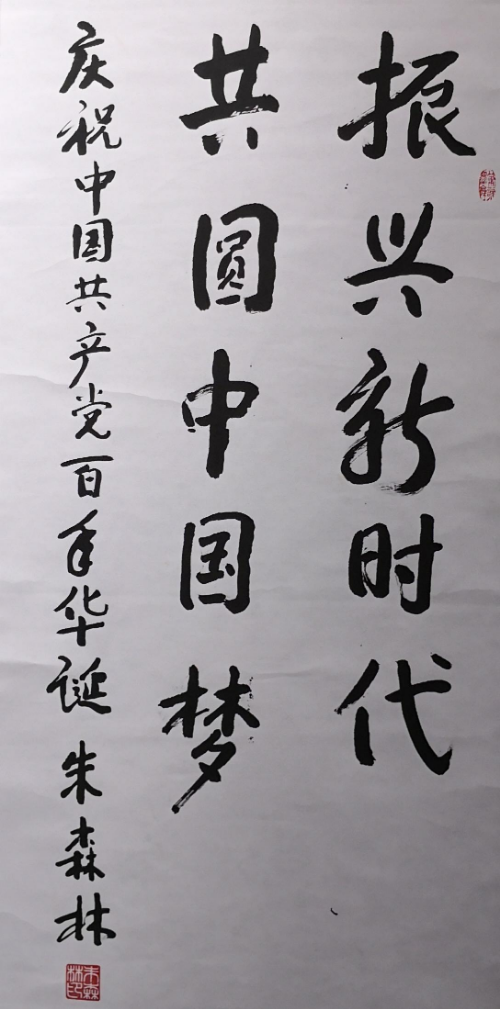 振兴新时代
共圆中国梦
庆祝中国共产党百年华诞 朱森林
朱森林印